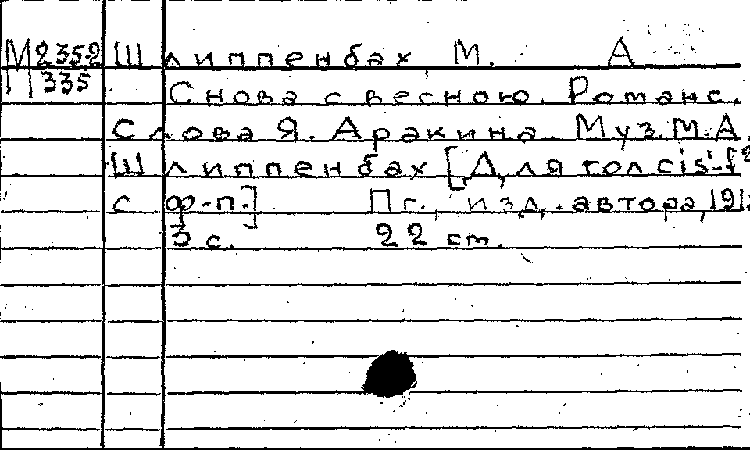 М 2352 Шлиппенбах М. А
335
Снова с весною. Романс.
Слова Я. Аракина. Муз. М. А.
Шлиппенбах [Для гол cis'-f²
с ф-п.] Пг., изд. автора, 191
3 с. 22 см.